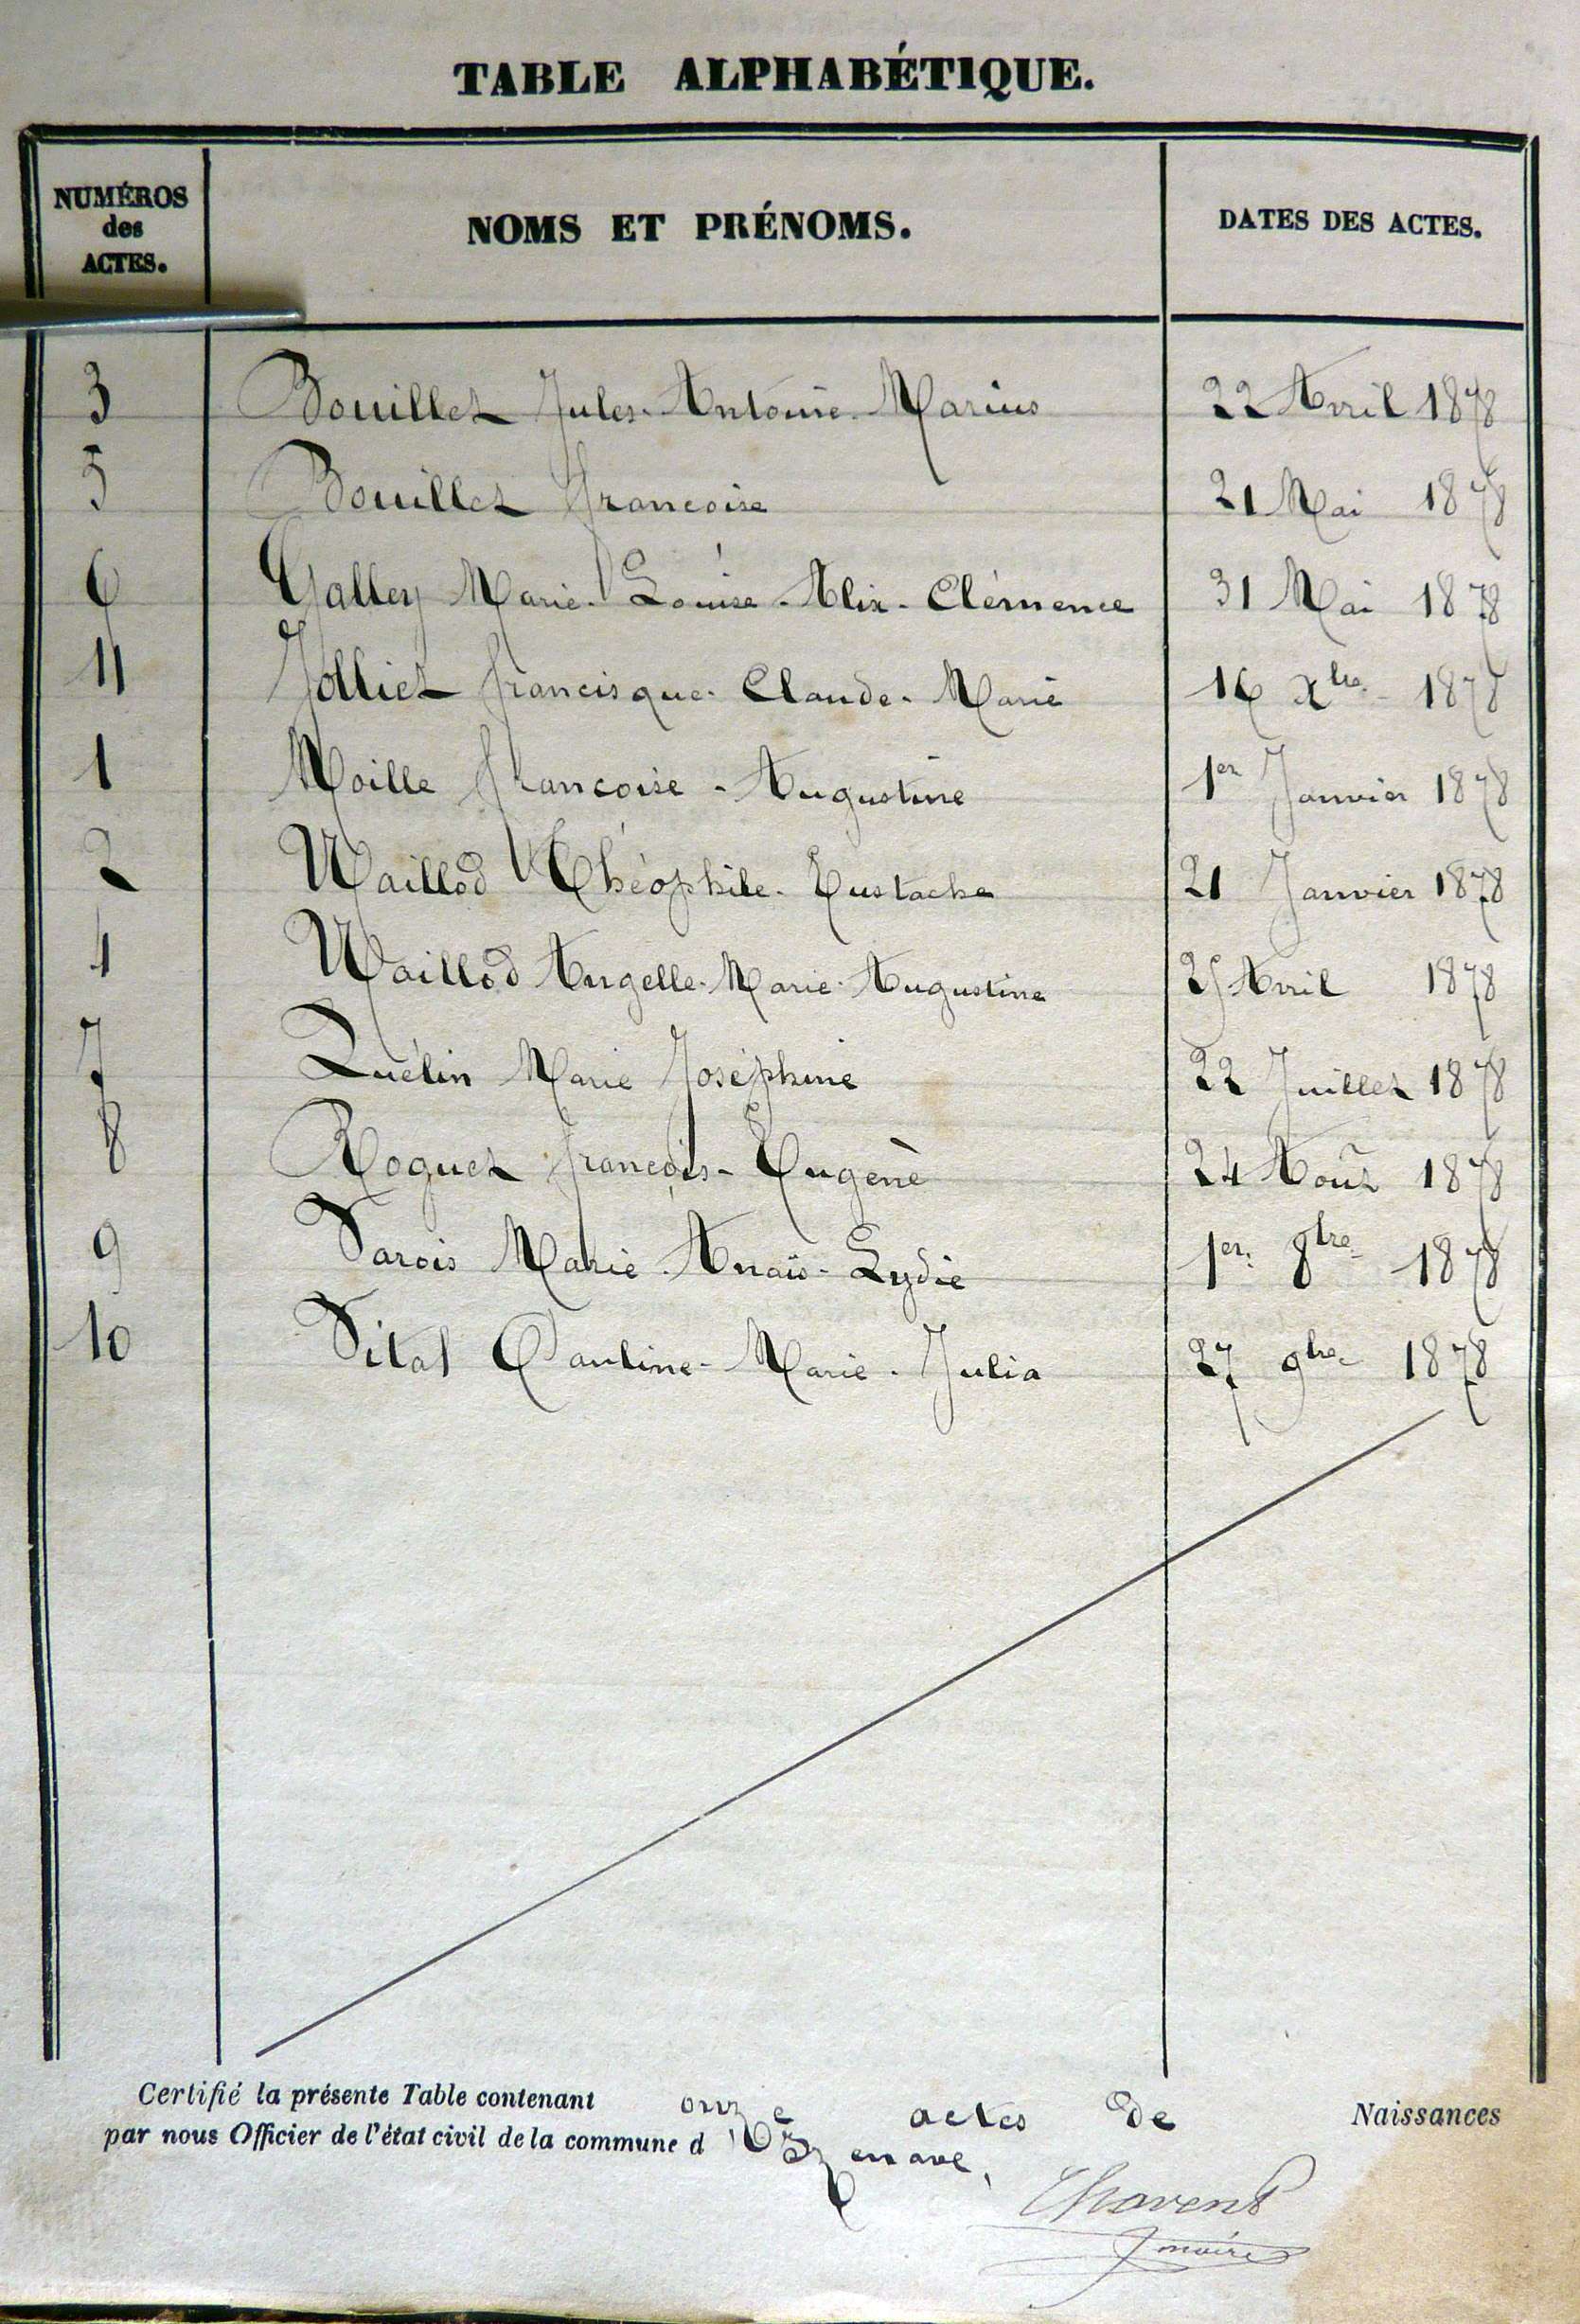 TABLE ALPHABÉTIQUE.
NUMÉROS
des
ACTES.
NOMS ET PRÉNOMS.
DATES DES ACTES.
3 Bouillet Jules-Antoine-Marius 22 Avril 1878
5 Bouillet françoise 21 Mai 1878
6 Galley Marie-Louise-Alix-Clémence 31 Mai 1878
11 Jolliet francisque-Claude-Marie 16 Xbre 1878
1 Moille françoise-Augustine 1er Janvier 1878
2 Naillod Théophile-Eustache 21 Janvier 1878
4 Naillod Angelle-Marie-Augustine Avril 1878
7 Quélin Marie Joséphine 22 Juillet 1878
8 Roguet françois-Eugène 24 Août 1878
9 Varois Marie-Anaïs-Lydie 1er 8bre 1878
10 Vital Pauline-Marie-Julia 27 9bre 1878
Certifié la présente Table contenant onze actes de Naissances
par nous Officier de l'état civil de la commune d
maire